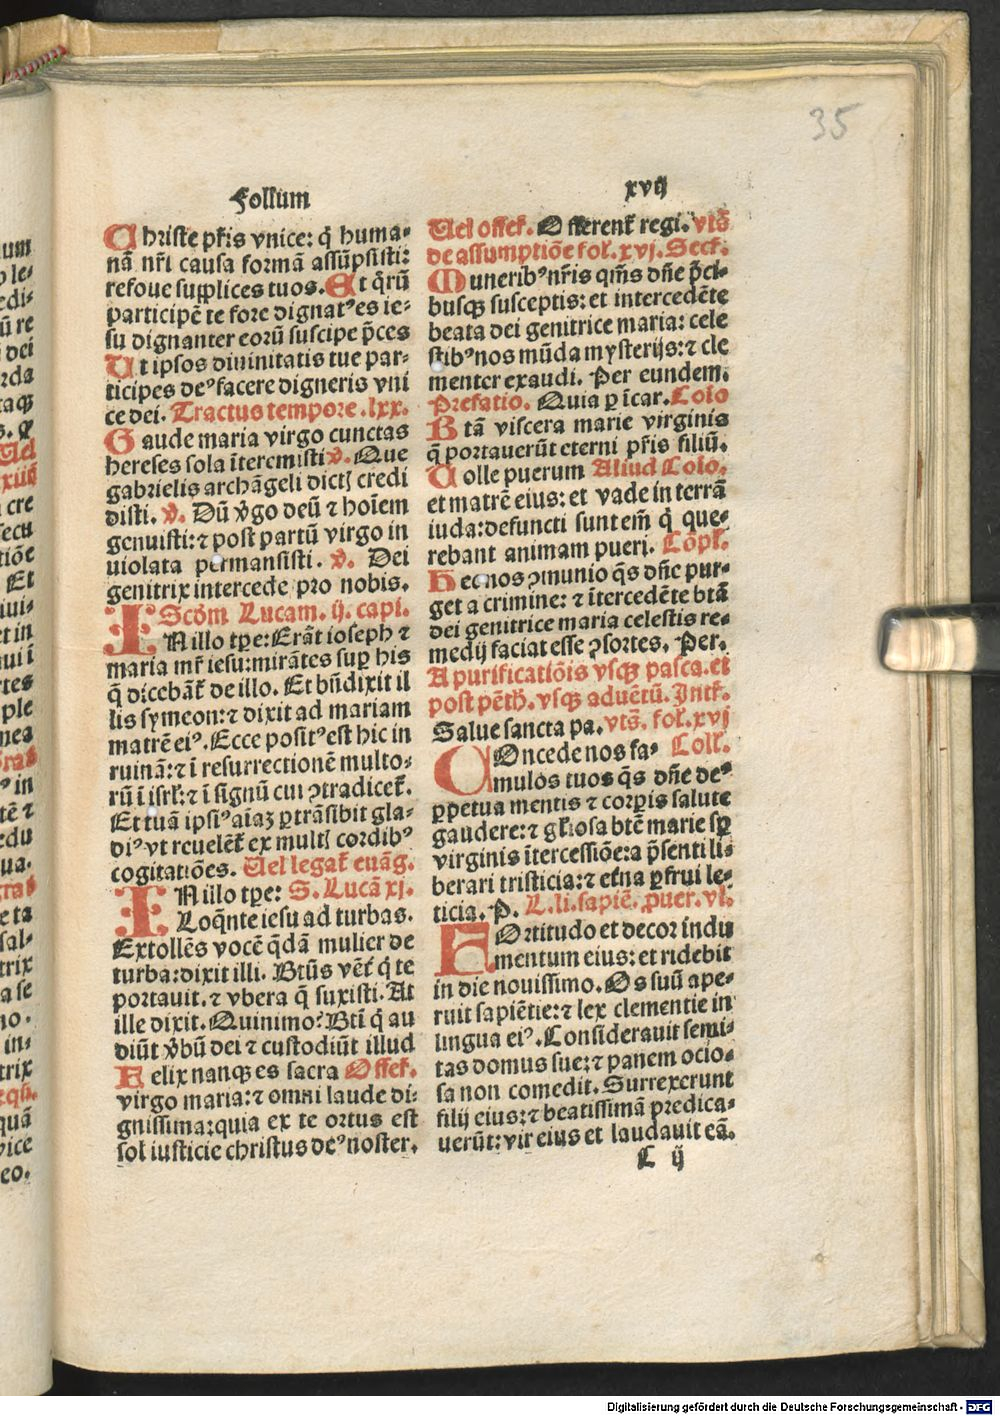 35
Follum xvij
Christe pr̃is vnice: q̃ huma-
nã nr̃i causa formã assũpsisti:
refoue supplices tuos. Et q̃rũ
participẽ te fore dignatꝰes ie-
su dignanter eorũ suscipe p̃ces
Ut ipsos diuinitatis tue par-
ticipes deꝰ facere digneris vni
ce dei. Tractus tempore .lxx.
Gaude maria virgo cunctas
hereses sola ĩteremisti. v̾. Que
gabrielis archãgeli dictꝭ credi
disti. v̾. Dũ v̾go deũ ⁊ hoĩem
genuisti: ⁊ post partũ virgo in
uiolata permansisti. v̾. Dei
genitrix intercede pro nobis.
Scðm Lucam. ij. capi.
IN illo tp̃e: Erãt ioseph ⁊
maria mr̃ iesu: mirãtes suꝑ his
q̃ dicebãt᷑ de illo. Et bñdixit il
lis symeon: ⁊ dixit ad mariam
matrẽ eiꝰ. Ecce positꝰ est hic in
ruinã: ⁊ ĩ resurrectionẽ multo-
rũ ĩ isrl̃: ⁊ ĩ signũ cui ꝯtradicet᷑.
Et tuã ipsiꝰ aĩaꝫ ꝑtrãsibit gla-
diꝰ vt reuelẽt᷑ ex multꝭ cordibꝰ
cogitatiões. Uel legat᷑ euãg.
IN illo tp̃e: S. Lucã xj.
Loq̃nte iesu ad turbas.
Extollẽs vocẽ q̃dã mulier de
turba: dixit illi. Btũs vẽt᷑ q̃ te
portauit. ⁊ vbera q̃ suxisti. At
ille dixit. Quinimo? Btĩ q̃ au
diũt v̾bũ dei ⁊ custodiũt illud
Felix nanqꝫ es sacra Offet᷑.
virgo maria: ⁊ omni laude di-
gnissima: quia ex te ortus est
sol iusticie christus deꝰ noster.
Uel offet᷑. Offerent᷑ regi. vts̃
de assumptiõe fol᷑. xvj. Sect᷑.
Muneribꝰ nr̃is qm̃s dñe p̃ci-
busqꝫ susceptis: et intercedẽte
beata dei genitrice maria: cele
stibꝰ nos mũda mysterijs: ⁊ cle
menter exaudi. Per eundem.
Prefatio. Quia ꝑ ĩcar. Cõio
Btã viscera marie virginis
q̃ portauerũt eterni pr̃is filiũ.
Tolle puerum Aliud Cõio.
et matrẽ eius: et vade in terrã
iuda: defuncti sunt em̃ q̃ que-
rebant animam pueri. Cõpl᷑.
Hec nos ꝯmunio q̃s dñe pur-
get a crimine: ⁊ ĩtercedẽte btã
dei genitrice maria celestis re-
medij faciat esse ꝯsortes. Per.
A purificatiõis vsqꝫ pasca. et
post pẽth. vsqꝫ aduẽtũ. Int᷑.
Salue sancta pa. vts̃. fol᷑. xvj
COncede nos fa- Coll᷑.
mulos tuos q̃s dñe deꝰ
ꝑpetua mentis ⁊ corꝑis salute
gaudere: ⁊ gl̃iosa btẽ marie sꝑ
virginis ĩtercessiõe: a p̃senti li-
berari tristicia: ⁊ et̾na ꝑfrui le-
ticia. P. L. li. sapiẽ. ꝓuer. vl᷑.
FOrtitudo et decor indu
mentum eius: et ridebit
in die nouissimo. Os suũ ape-
ruit sapiẽtie: ⁊ lex clementie in
lingua eiꝰ. Considerauit semi-
tas domus sue: ⁊ panem ocio-
sa non comedit. Surrexerunt
filij eius: ⁊ beatissimã predica-
uerũt: vir eius et laudauit eã.
C ij
Digitalisierung gefördert durch die Deutsche Forschungsgemeinschaft - DFG